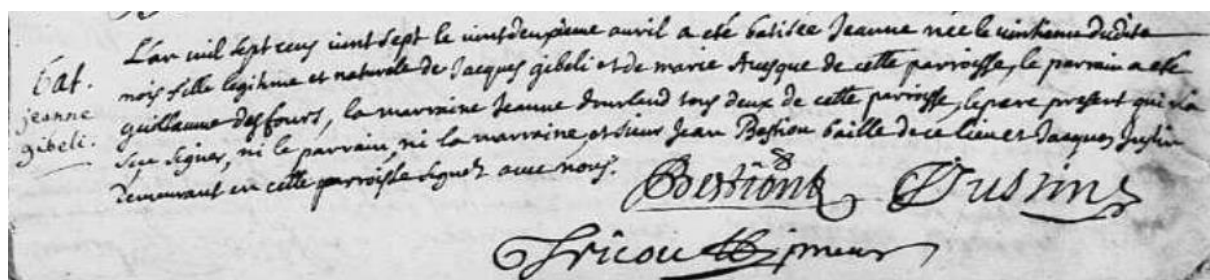 bat.
jeanne
gibeli.
L'an mil sept cens vint sept le vint deuxieme auril a eté batisée Jeanne née le vintieme dudit
mois fille legitime et naturele de Jacques gibeli et de marie Auesque de cette parroisse, le parrain a eté
guillaume desfours, la marraine Jeanne tous deux de cette parroisse, le pere present qui n'a
sçu signer, ni le parrain, ni la marraine, et sieurs Jean Bestion baille de ce lieu et Jacques Justin
demeurant en cette parroisse signez auec nous.
Bestion Justin
Tricou prieur